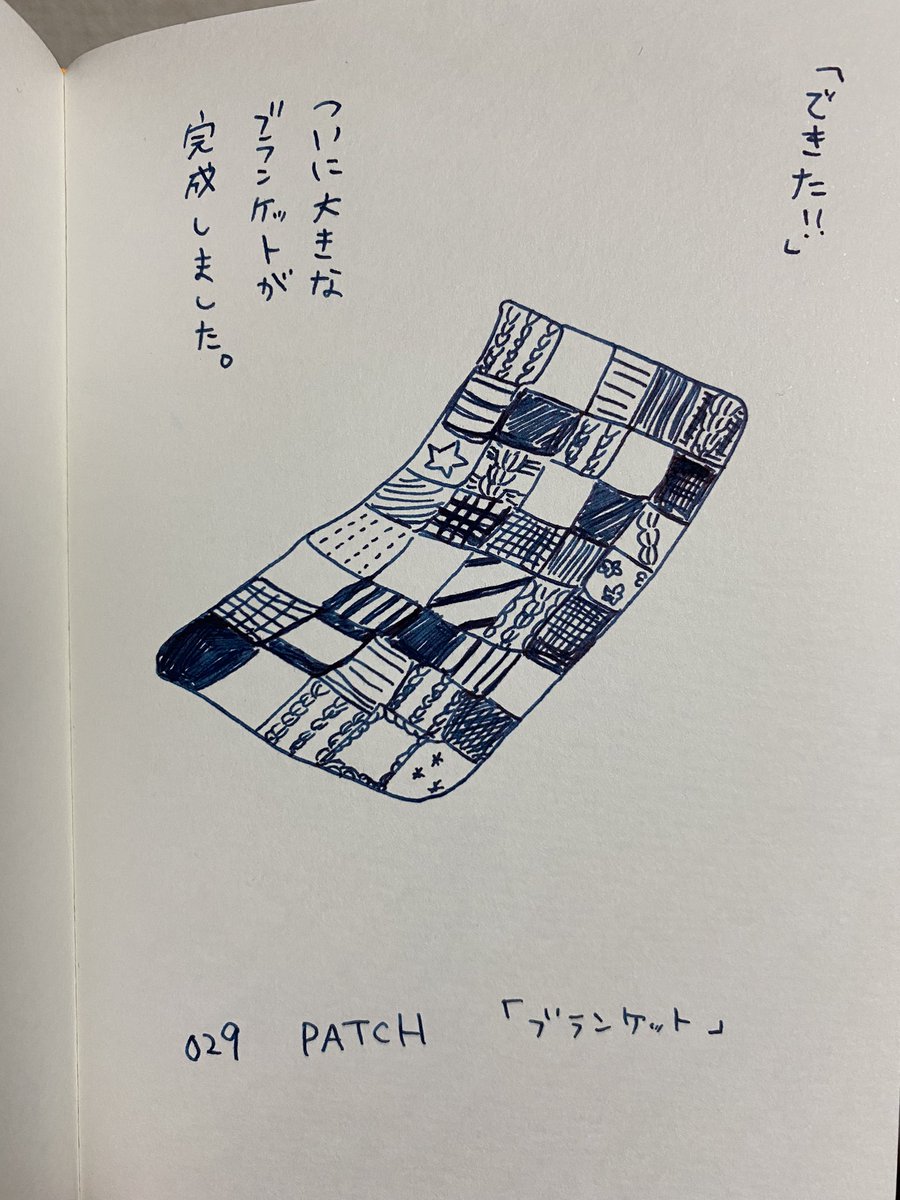 「できた!!」
ついに大きな
ブランケットが
完成しました。
029 PATCH 「ブランケット」